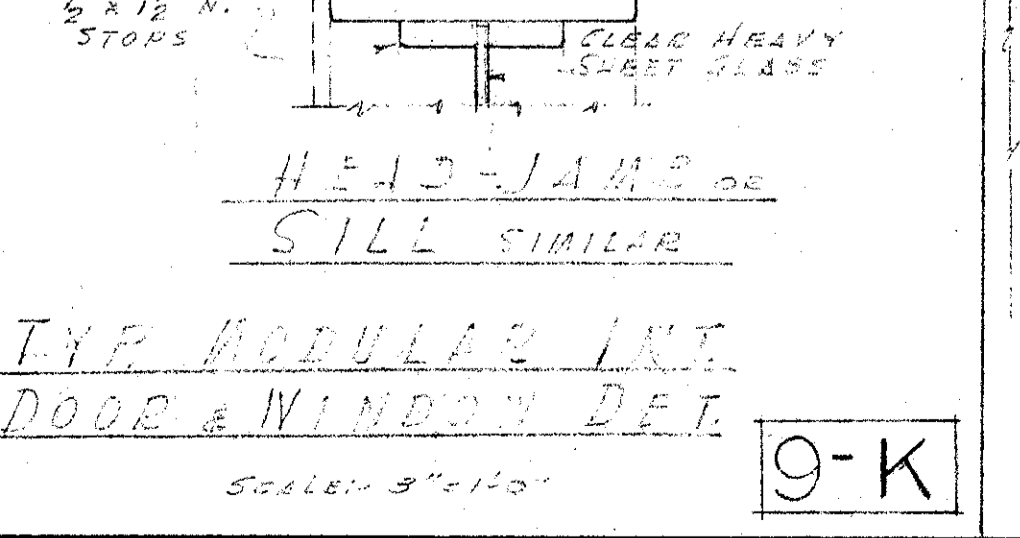 ½ x 1½ N.
STOPS
CLEAR HEAVY
SHEET GLASS
HEAD-JAMB OR
SILL SIMILAR
TYP. MODULAR INT.
DOOR & WINDOW DET.
SCALE:- 3"=1'-0"
9-K